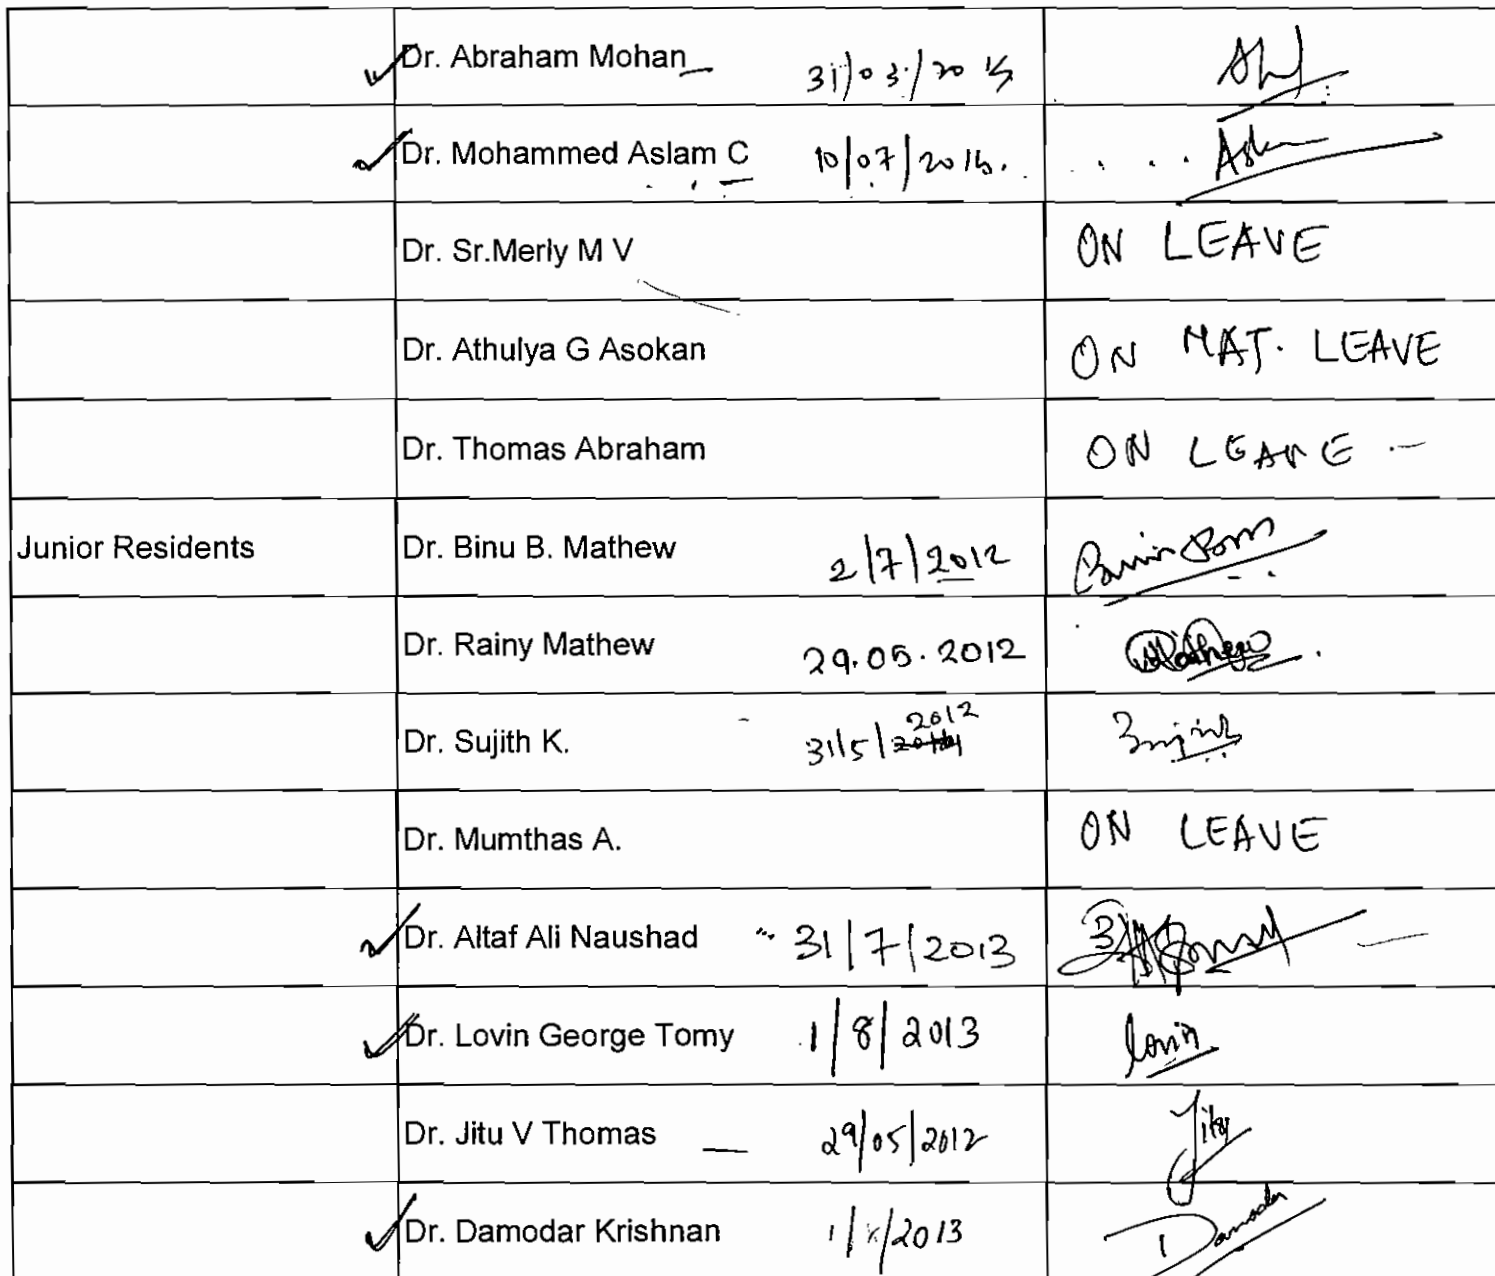 Dr. Abraham Mohan 31/03/20
Dr. Mohammed Aslam C 10/07/2015.
Dr. Sr.Merly M V ON LEAVE
Dr. Athulya G Asokan ON MAT. LEAVE
Dr. Thomas Abraham ON LEAVE
Junior Residents Dr. Binu B. Mathew 2/7/2012
Dr. Rainy Mathew 29.05.2012
Dr. Sujith K. 31/5/ 2012
Dr. Mumthas A. ON LEAVE
Dr. Altaf Ali Naushad 31/7/2013
Dr. Lovin George Tomy 1/8/2013 Lovin
Dr. Jitu V Thomas 29/05/2012 Jitu
Dr. Damodar Krishnan 2013 Damodar